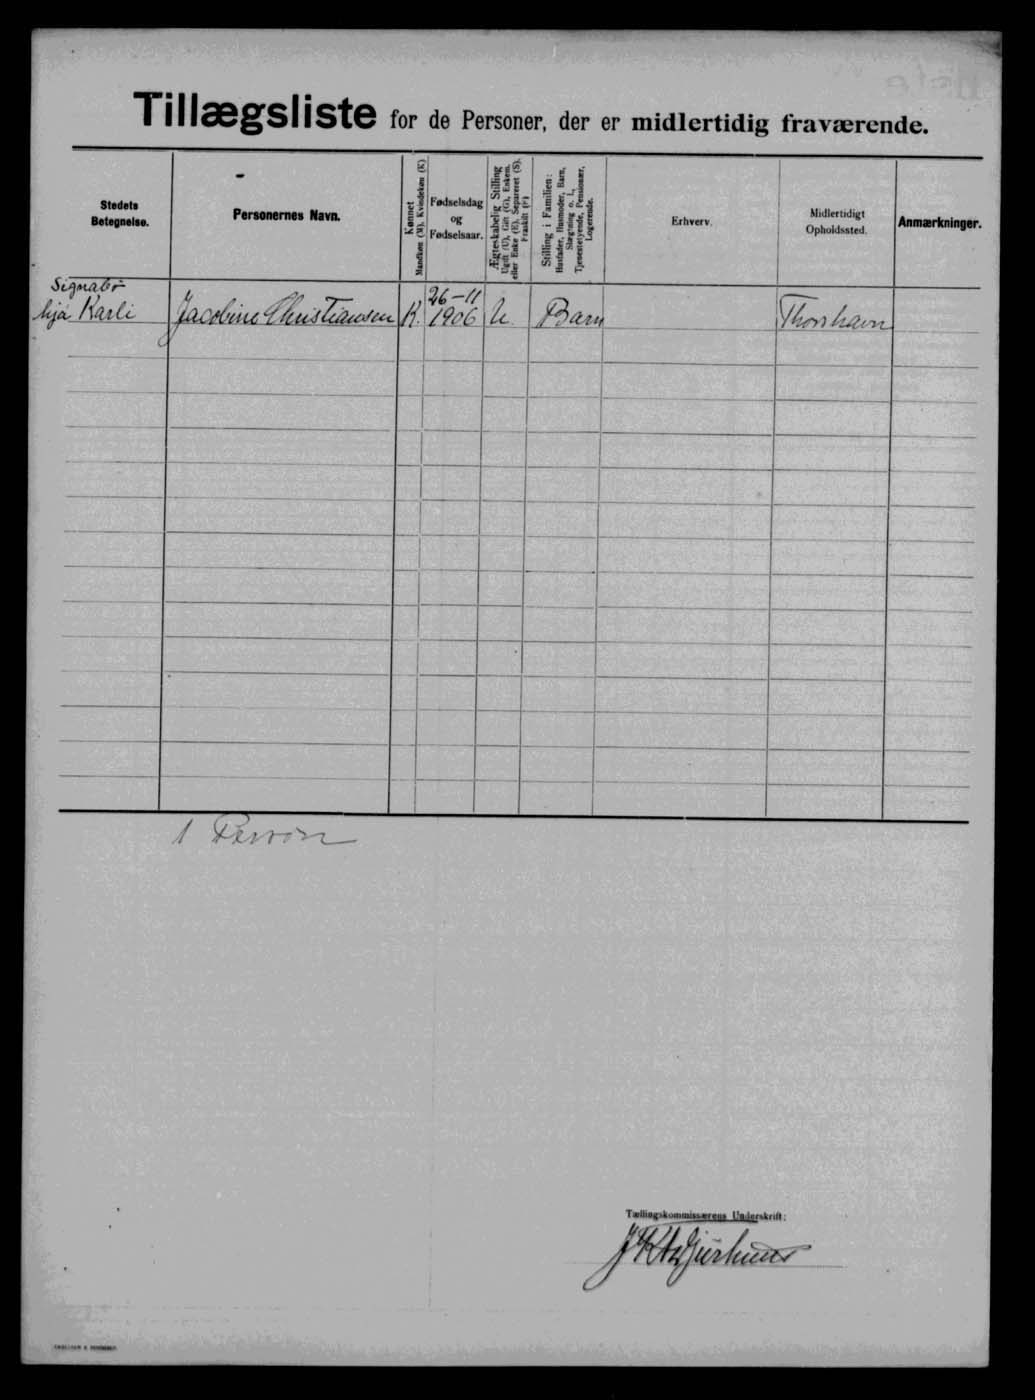 Tillægsliste for de Personer, der er midlertidig fraværende.
Stedets Betegnelse.
Personernes Navn.
Kønnet Mandkøn (M), Kvindekøn (K)
Fødselsdag og Fødselsaar.
Ægteskabelig Stilling Ugift (U), Gift (G), Enkem. eller Enke (E), Separeret (S), Fraskilt (F)
Stilling i Familien: Husfader, Husmoder, Barn, Slægtning o. l., Tjenestetyende, Pensionær, Logerende.
Erhverv.
Midlertidigt Opholdssted.
Anmærkninger.
Signabø
hjá Karli Jacobine Christiansen K. 26-11 1906 U. Barn Thorshavn
1 Person
Tællingskommissærens Underskrift:
Djurhuus